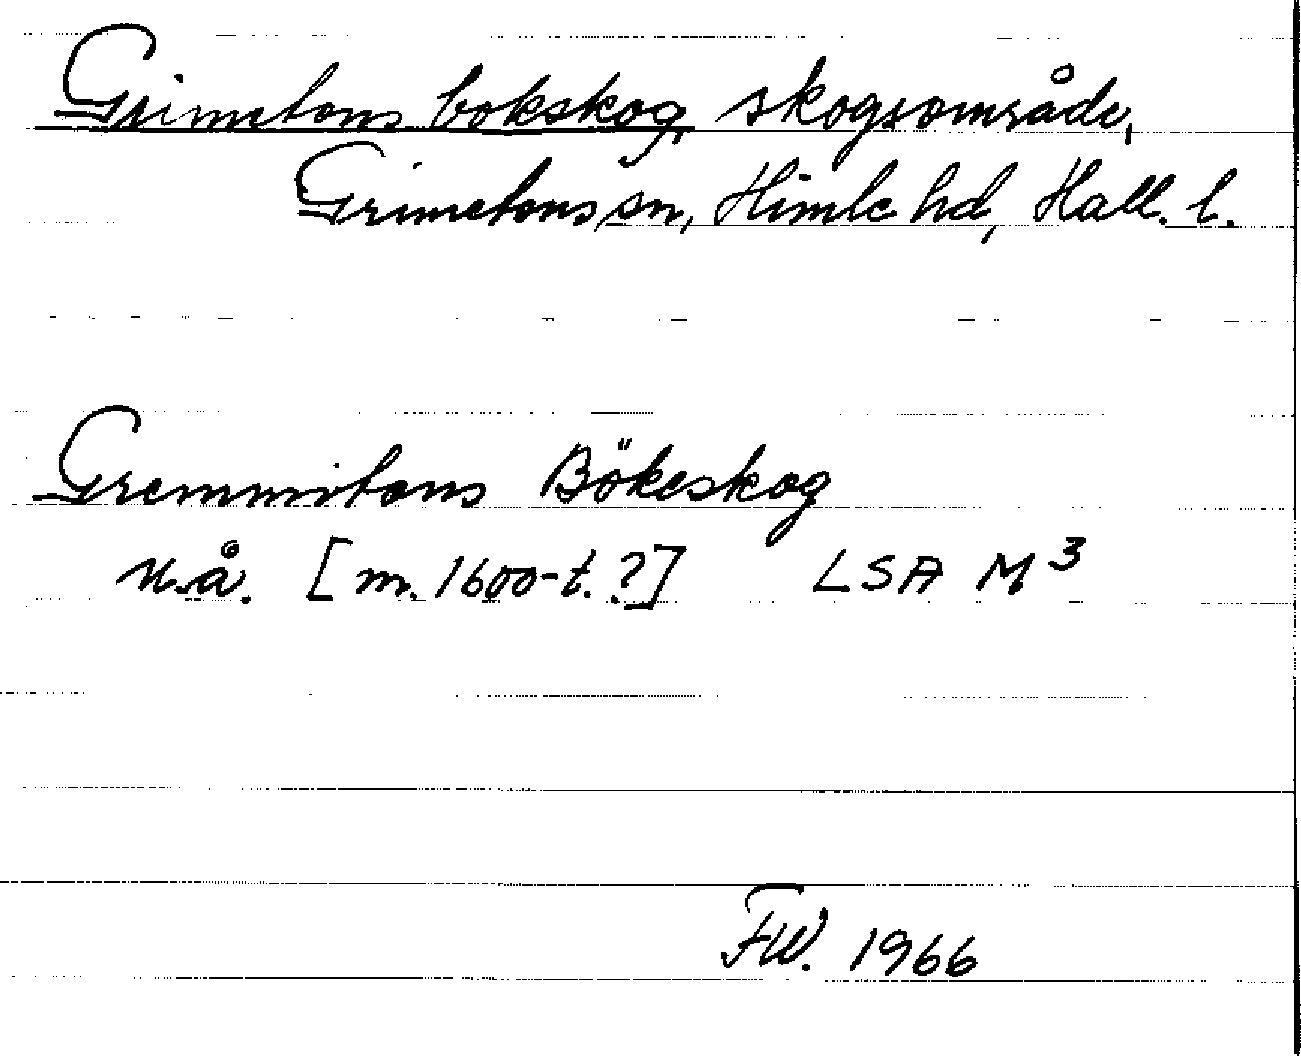 Grimetons bokskog, skogsområde,
Grimetons sn, Himle hd, Hall. l.
Gremmitons Bökeskog
u.å. [m. 1600-t.?] LSA M3
FW. 1966